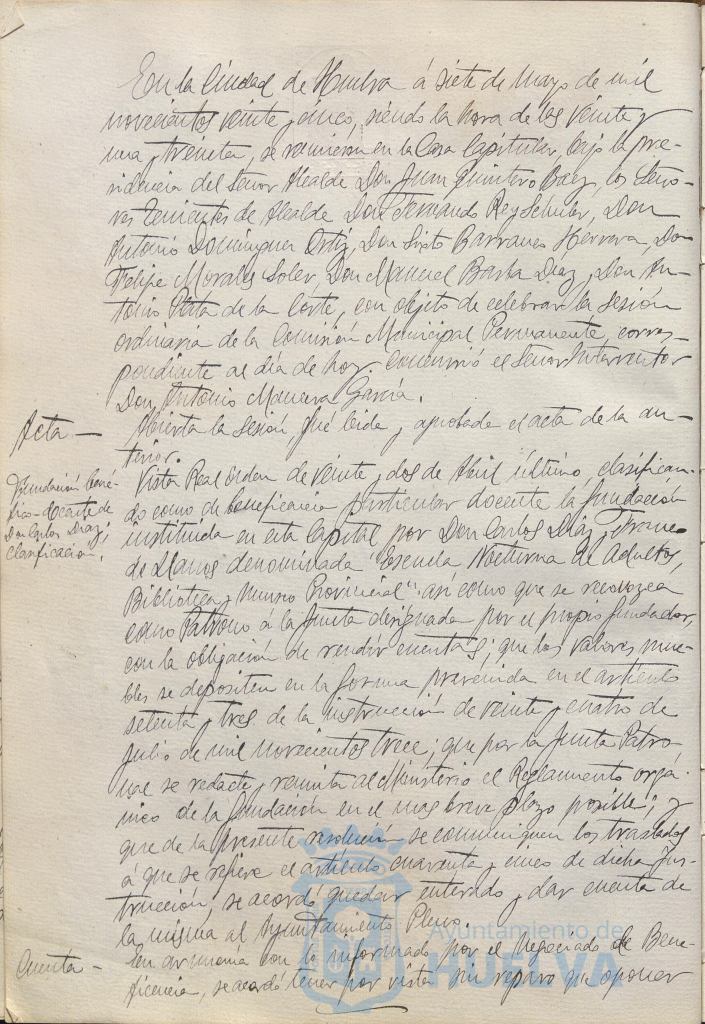 En la Ciudad de Huelva á siete de Mayo de mil
novecientos veinte y cinco, siendo la hora de las veinte y
una y treinta, se reunieron en la Casa Capitular, bajo la pre-
sidencia del Señor Alcalde Don Juan Quintero Baez, los Seño-
res Tenientes de Alcalde Don Fernando Rey Schuler, Don
Antonio Dominguez Ortiz, Don Sixto Barranco Herrera, Don
Felipe Morales Soler, Don Manuel Barba Diaz, y Don An-
tonio Plata de la Corte, con objeto de celebrar la sesión
ordinaria de la Comisión Municipal Permanente, corres-
pondiente al día de hoy. Concurrió el Señor Interventor
Don Antonio Mancera García.
Acta —
Abierta la sesión fué leida y aprobada el acta de la an-
terior.
Fundación bené-
fico-docente de
Don Carlos Diaz;
clasificación.
Vista Real órden de veinte y dos de Abril último clasifican-
do como de beneficencia particular docente la fundación
instituida en esta Capital por Don Carlos Diaz y Franco
de Llanos denominada "Escuela Nocturna de Adultos,
Biblioteca y Museo Provincial" así como que se reconozca
como Patrono á la Junta designada por el propio fundador,
con la obligación de rendir cuentas; que los valores mue-
bles se depositen en la forma prevenida en el artículo
setenta y tres de la instrucción de veinte y cuatro de
Julio de mil novecientos trece; que por la Junta Patro-
nal se redacte y remita al Ministerio el Reglamento orgá-
nico de la fundación en el mas breve plazo posible; y
que de la presente resolución se comuniquen los traslados
á que se refiere el artículo cuarenta y cinco de dicha Ins-
trucción, se acordó quedar enterado y dar cuenta de
la misma al Ayuntamiento Pleno.
Cuenta —
En armonia con lo informado por el Negociado de Bene-
ficencia, se acordó tener por vista sin reparo que oponer
Ayuntamiento de
HUELVA